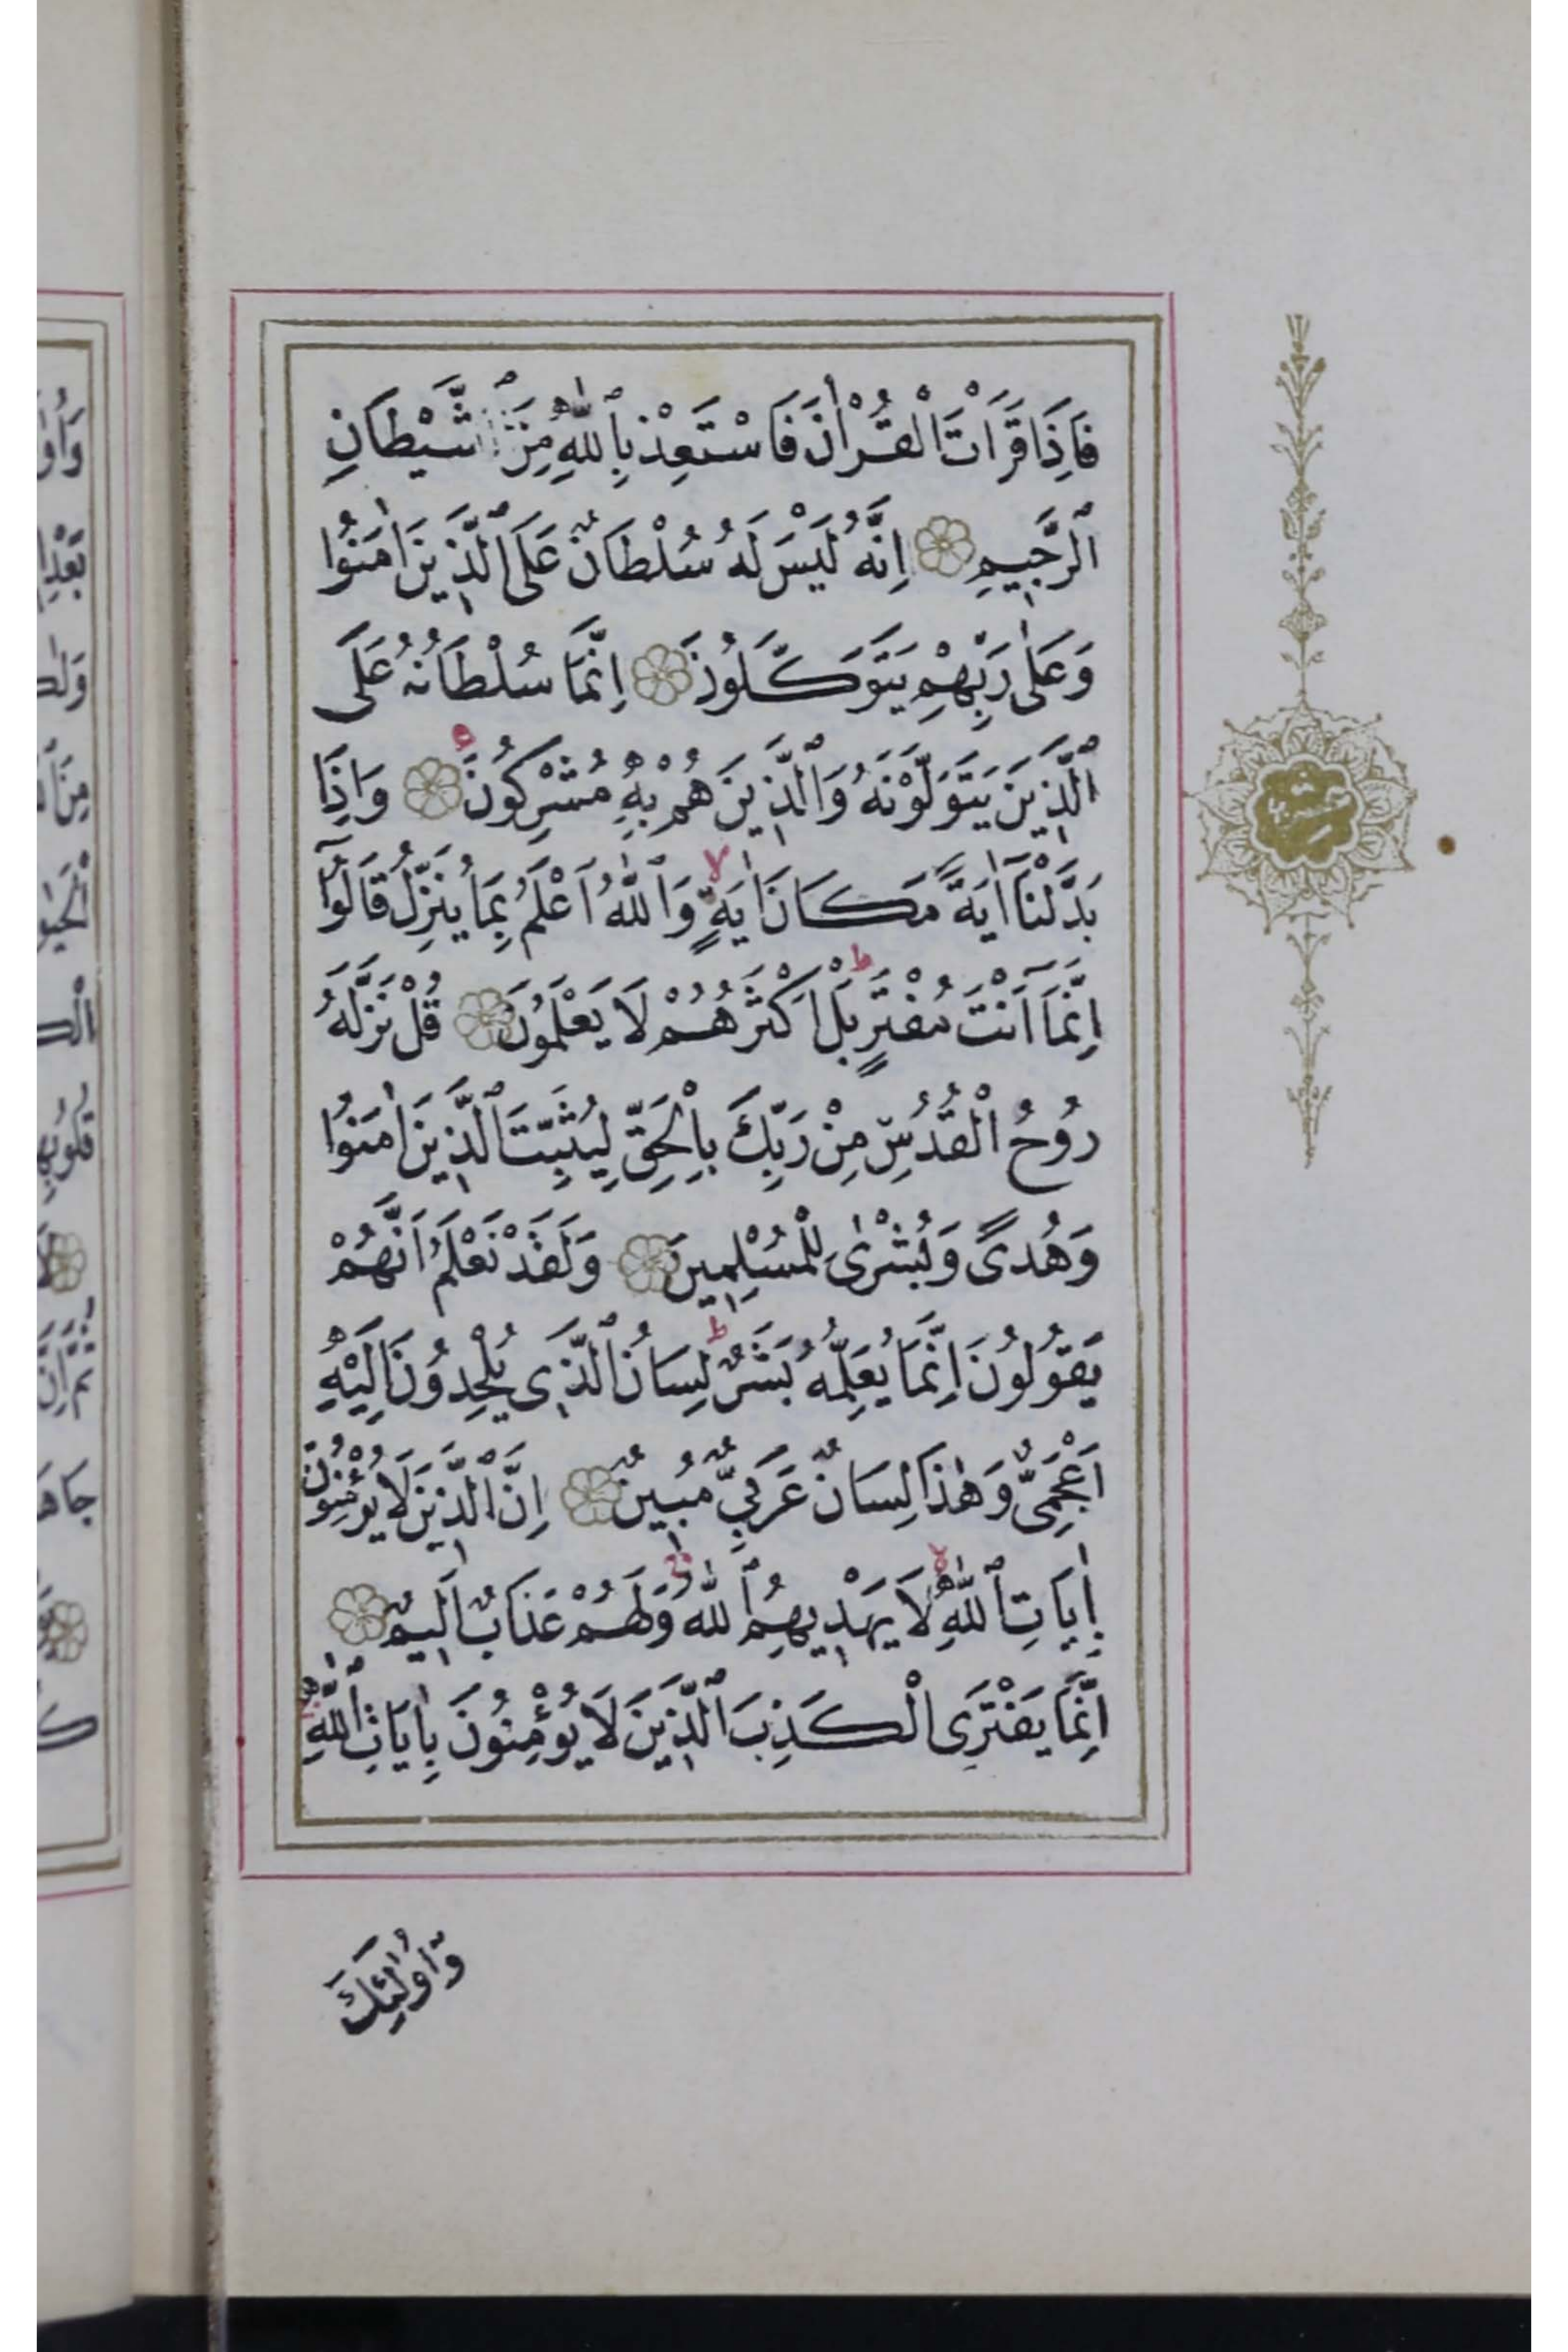 فَاِذَا قَرَاْتَ الْقُرْاٰنَ فَاسْتَعِذْ بِٱللّٰهِ مِنَ ٱلشَّيْطَانِ
ٱلرَّجٖيمِ اِنَّهُ لَيْسَ لَهُ سُلْطَانٌ عَلَى ٱلَّذٖينَ اٰمَنُوا
وَعَلٰى رَبِّهِمْ يَتَوَكَّلُونَ اِنَّمَا سُلْطَانُهُ عَلَى
ٱلَّذٖينَ يَتَوَلَّوْنَهُ وَٱلَّذٖينَ هُمْ بِهٖ مُشْرِكُونَ وَاِذَا
بَدَّلْنَآ اٰيَةً مَكَانَ اٰيَةٍ وَٱللّٰهُ اَعْلَمُ بِمَا يُنَزِّلُ قَالُوٓا
اِنَّمَآ اَنْتَ مُفْتَرٍ بَلْ اَكْثَرُهُمْ لَا يَعْلَمُونَ قُلْ نَزَّلَهُ
رُوحُ الْقُدُسِ مِنْ رَبِّكَ بِالْحَقِّ لِيُثَبِّتَ ٱلَّذٖينَ اٰمَنُوا
وَهُدًى وَبُشْرٰى لِلْمُسْلِمٖينَ وَلَقَدْ نَعْلَمُ اَنَّهُمْ
يَقُولُونَ اِنَّمَا يُعَلِّمُهُ بَشَرٌ لِسَانُ ٱلَّذٖى يُلْحِدُونَ اِلَيْهِ
اَعْجَمِىٌّ وَهٰذَا لِسَانٌ عَرَبِىٌّ مُبٖينٌ اِنَّ ٱلَّذٖينَ لَا يُؤْمِنُونَ
بِاٰيَاتِ ٱللّٰهِ لَا يَهْدٖيهِمُ ٱللّٰهُ وَلَهُمْ عَذَابٌ اَلٖيمٌ
اِنَّمَا يَفْتَرِى الْكَذِبَ ٱلَّذٖينَ لَا يُؤْمِنُونَ بِاٰيَاتِ ٱللّٰهِ
وَاُولٰٓئِكَ